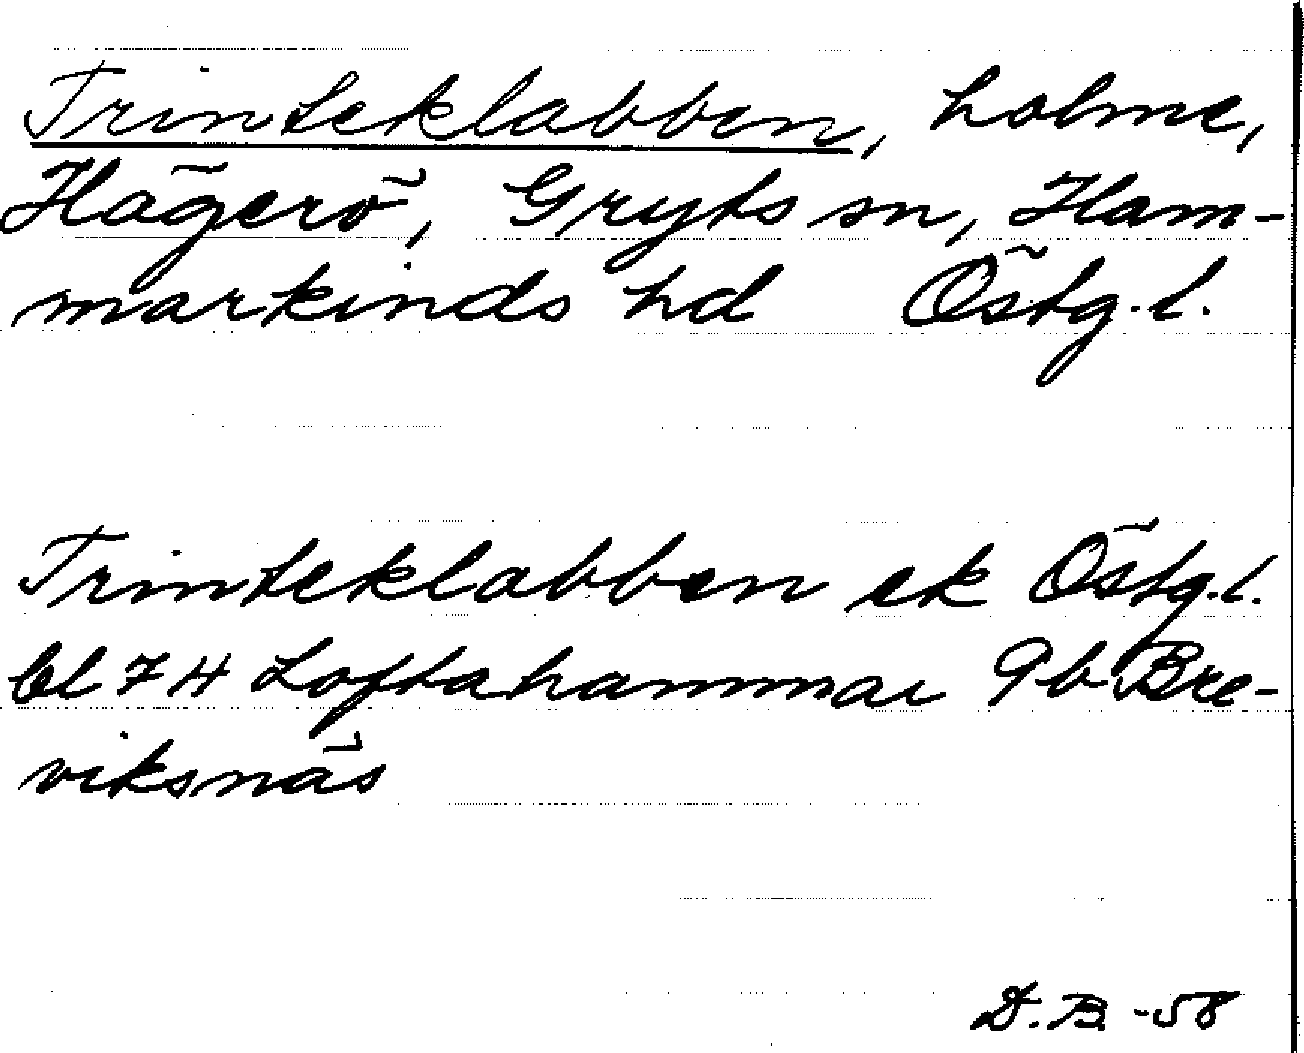 Trinteklabben, holme,
Hägerö, Gryts sn, Ham-
markinds hd Östg.l.
Trinteklabben ek Östg.l.
bl 7H Loftahammar 9b Bre-
viksnäs
D.B -58